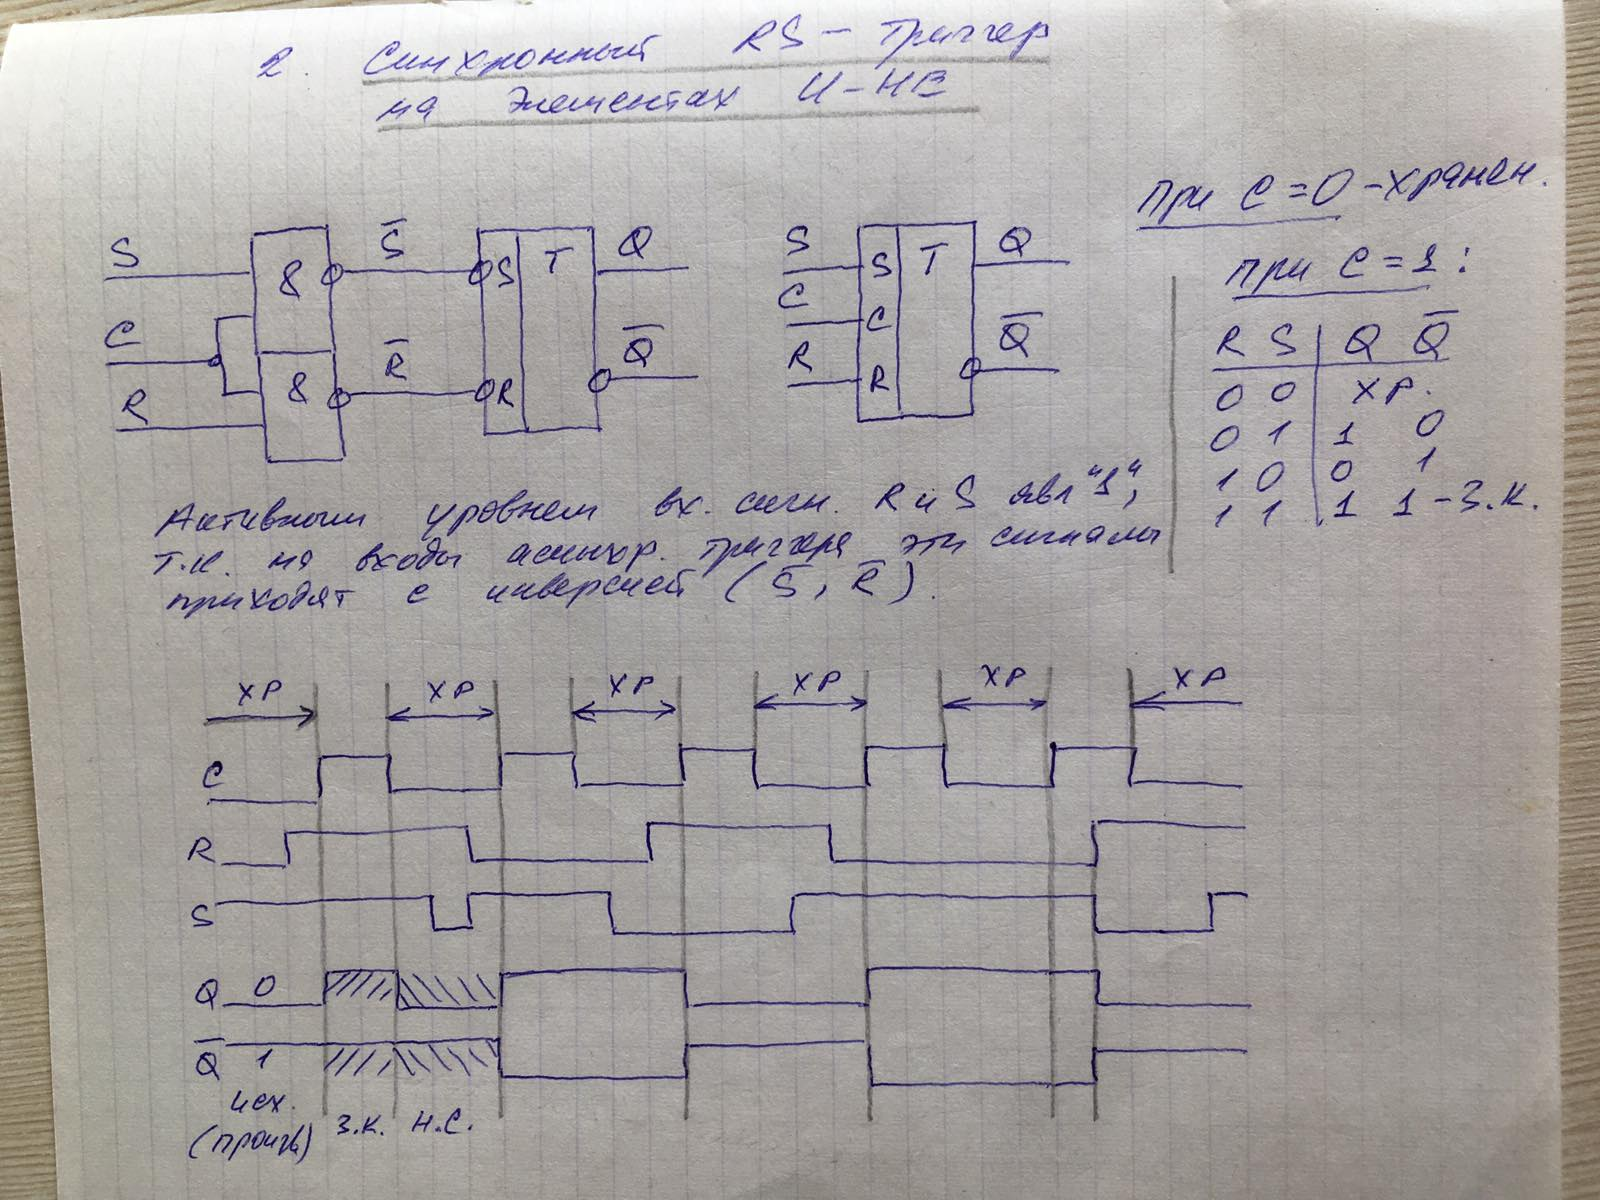 2. Синхронный RS-триггер
на элементах И-НЕ
При C=0 -хранен.
При C=1:
S
C
R
&
&
S̅
R̅
S T
R
Q
Q̅
S
C
R
S T
C
R
Q
Q̅
R S Q Q̅
0 0 хр.
0 1 1 0
1 0 0 1
1 1 1 1 - З.К.
Активным уровнем вх. сигн. R и S явл "1",
т.к. на входы асинхр. триггера эти сигналы
приходят с инверсией (S̅, R̅).
хр хр хр хр хр хр
C
R
S
Q 0
Q̅ 1
исх.
(произв) З.К. Н.С.